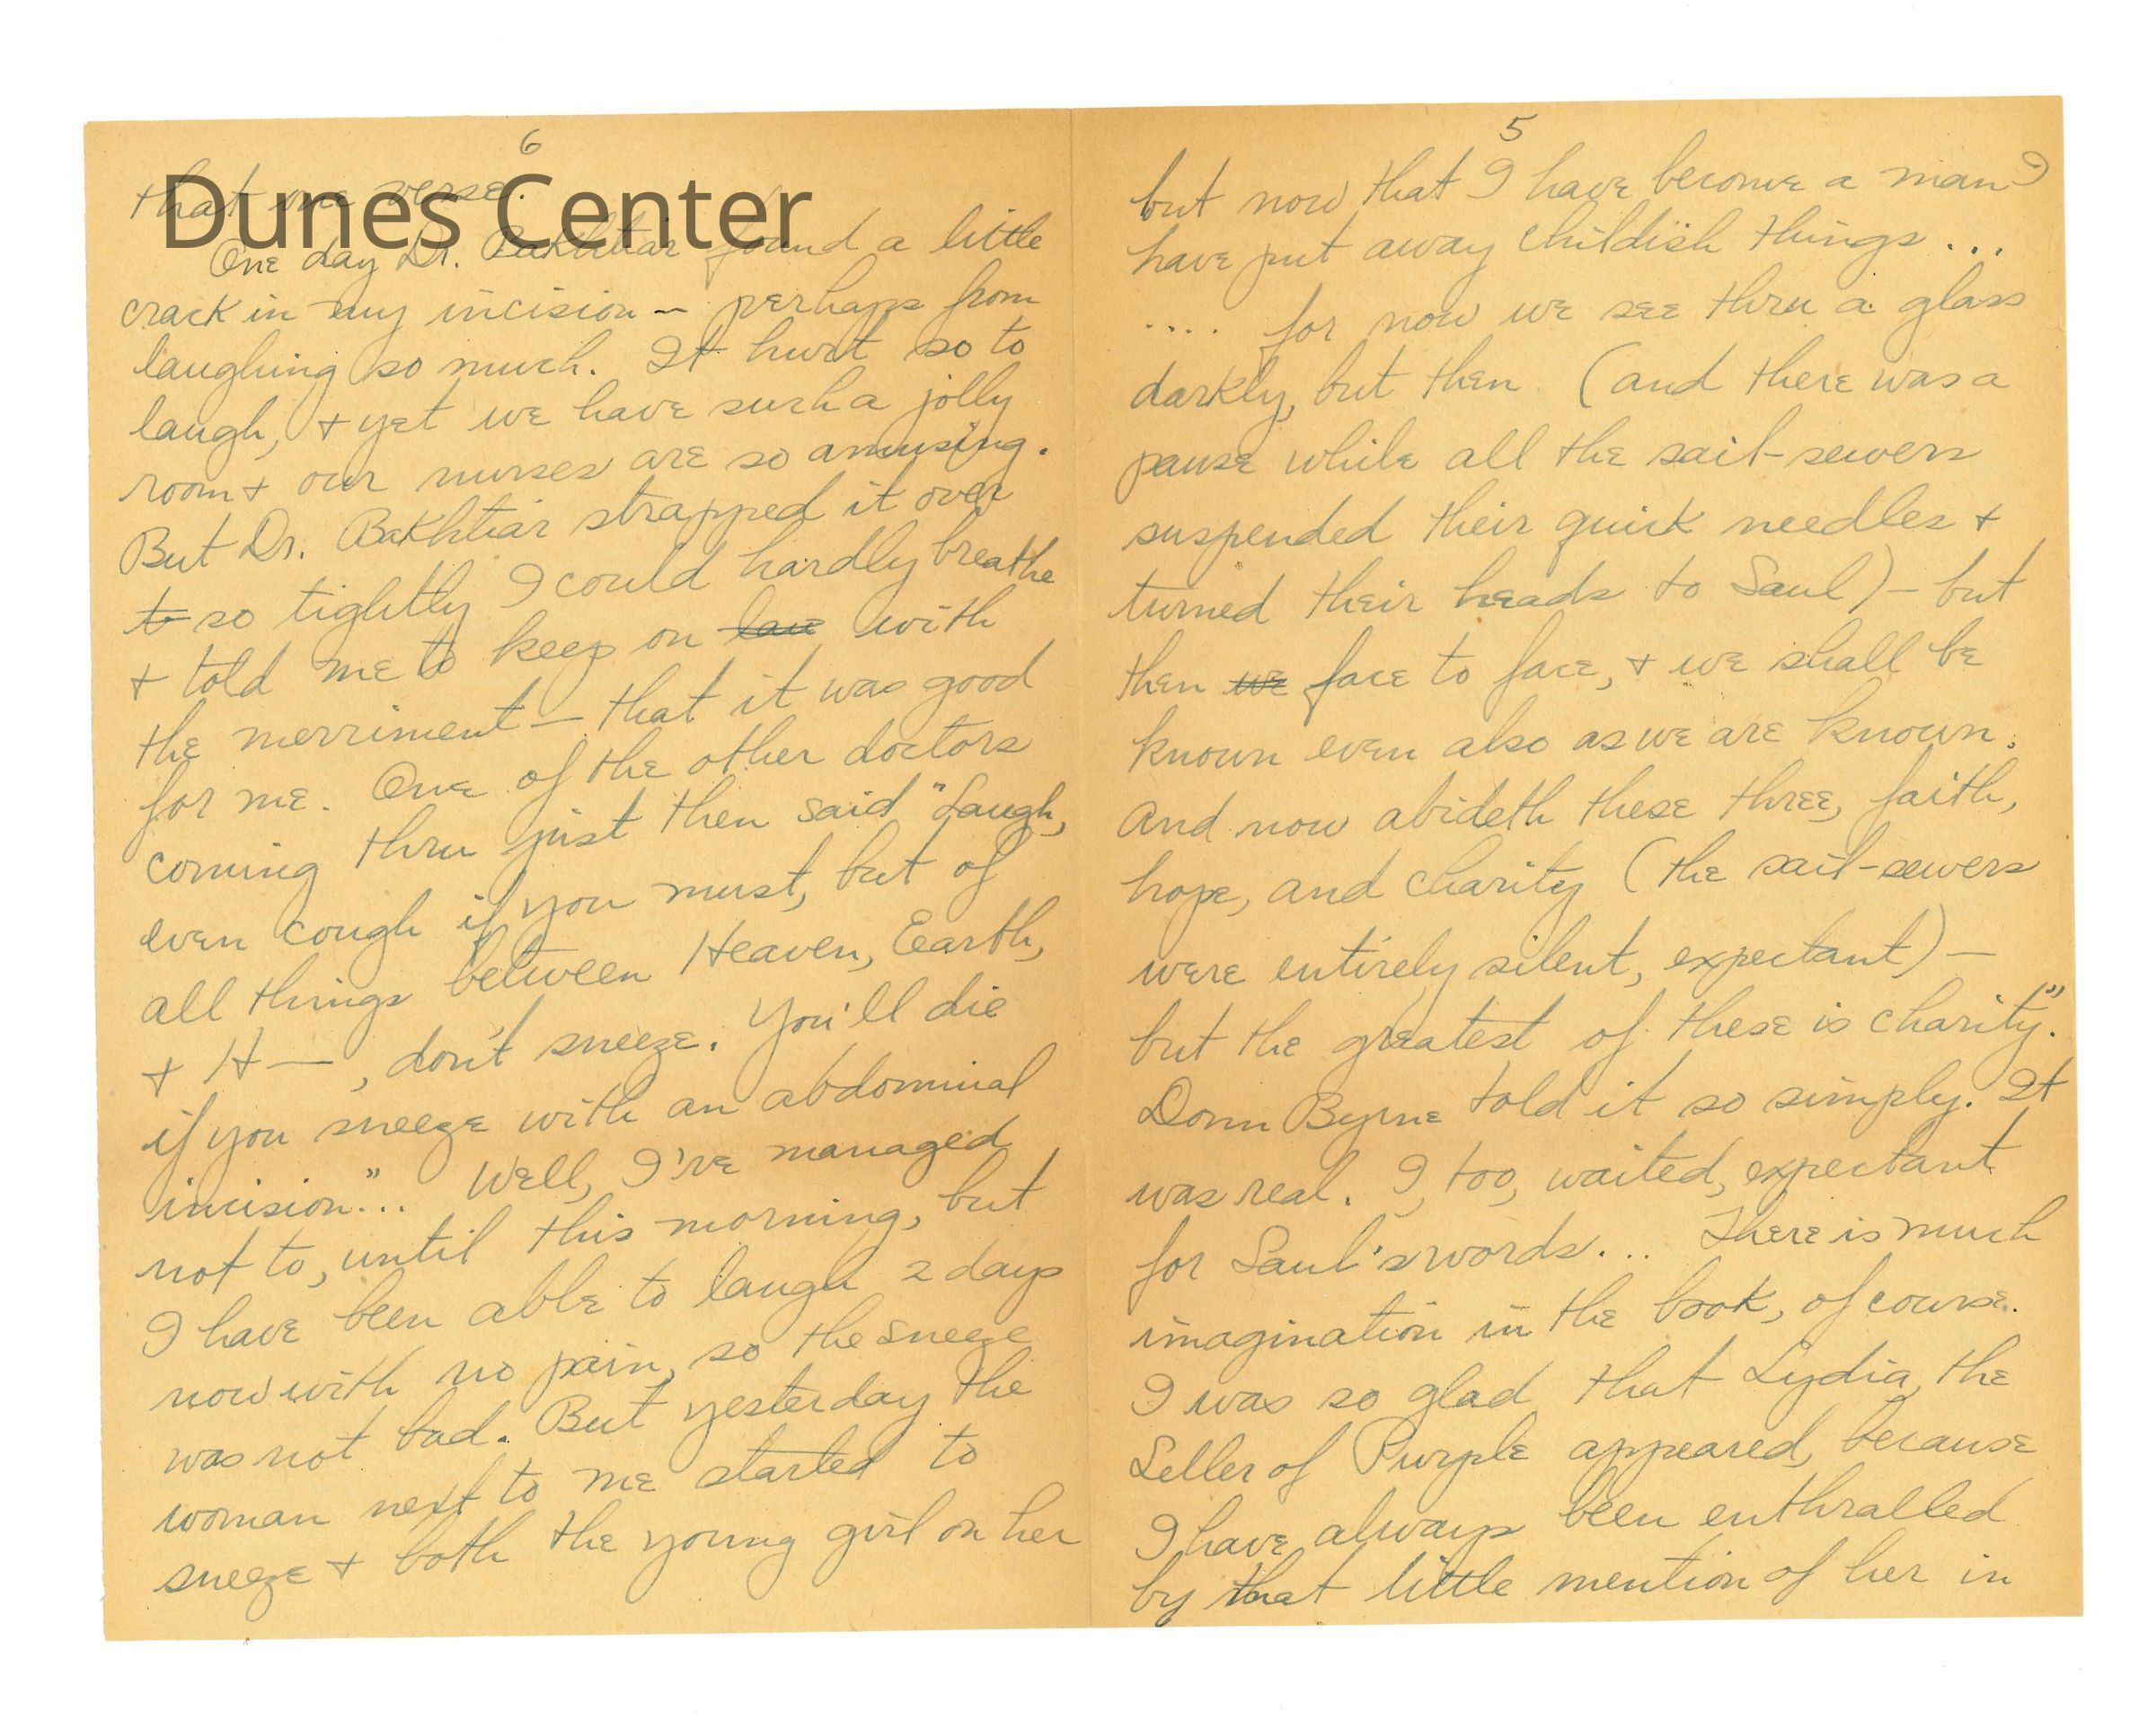 5
but now that I have become a man I
have put away childish things...
.... for now we see thru a glass
darkly, but then (and there was a
pause while all the sail-sewers
suspended their quick needles +
turned their heads to Saul) — but
then we face to face, + we shall be
known even also as we are known.
And now abideth these three, faith,
hope, and charity (the sail-sewers
were entirely silent, expectant) —
but the greatest of these is charity."
Donn Byrne told it so simply. It
was real. I, too, waited, expectant
for Saul's words... There is much
imagination in the book, of course.
I was so glad that Lydia, the
Seller of Purple appeared, because
I have always been enthralled
by that little mention of her in
6
that one verse.
Dunes Center
One day Dr. Bakhtiar found a little
crack in my incision — perhaps from
laughing so much. It hurt so to
laugh, + yet we have such a jolly
room + our nurses are so amusing.
But Dr. Bakhtiar strapped it over
t so tightly I could hardly breathe
+ told me to keep on lau with
the merriment — that it was good
for me. One of the other doctors
coming thru just then said "Laugh,
even cough if you must, but of
all things between Heaven, Earth,
+ H—, don't sneeze. You'll die
if you sneeze with an abdominal
incision"... Well, I've managed
not to, until this morning, but
I have been able to laugh 2 days
now with no pain, so the sneeze
was not bad. But yesterday the
woman next to me started to
sneeze + both the young girl on her